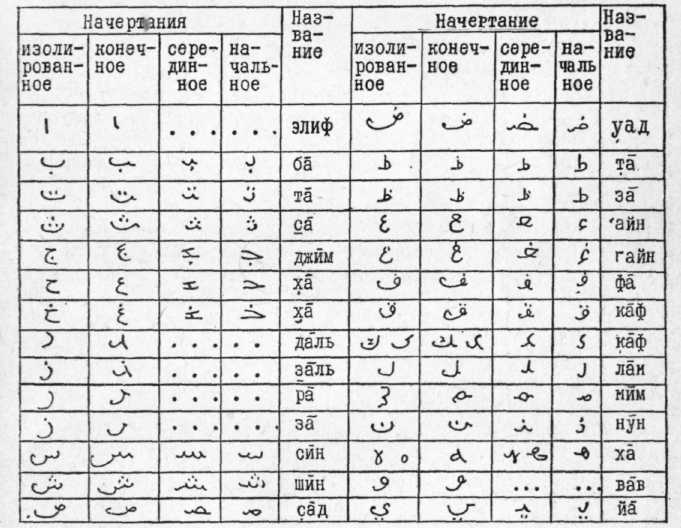 Начертания Наз- Начертание Наз-
ва- ва-
ние ние
изоли- конеч- сере- на- изоли- конеч- сере- на-
рован- ное дин- чаль- рован- ное дин- чаль
ное ное ное ное ное ное
ا ـا . . . . . . элиф ض ـض ـضـ ضـ уад
ب ـب ـبـ بـ ба̄ ط ـط ـطـ طـ т̣а̄
ت ـت ـتـ تـ та̄ ظ ـظ ـظـ ظـ за̄
ث ـث ـثـ ثـ с̱а̄ ع ـع ـعـ عـ ‘айн
ج ـج ـجـ جـ джӣм غ ـغ ـغـ غـ гайн
ح ـح ـحـ حـ х̣а̄ ف ـف ـفـ فـ фа̄
خ ـخ ـخـ خـ х̮а̄ ق ـق ـقـ قـ к̣а̄ф
د ـد . . . . . . да̄ль ك ـك ـكـ كـ ка̄ф
ذ ـذ . . . . . . за̄ль ل ـل ـلـ لـ ла̄м
ر ـر . . . . . . ра̄ م ـم ـمـ مـ мӣм
ز ـز . . . . . . за̄ ن ـن ـنـ نـ нӯн
س ـس ـسـ سـ сӣн ه ـه ـهـ هـ ха̄
ش ـش ـشـ شـ шӣн و ـو ... ... ва̄в
ص ـص ـصـ صـ с̣а̄д ي ـي ـيـ يـ йа̄